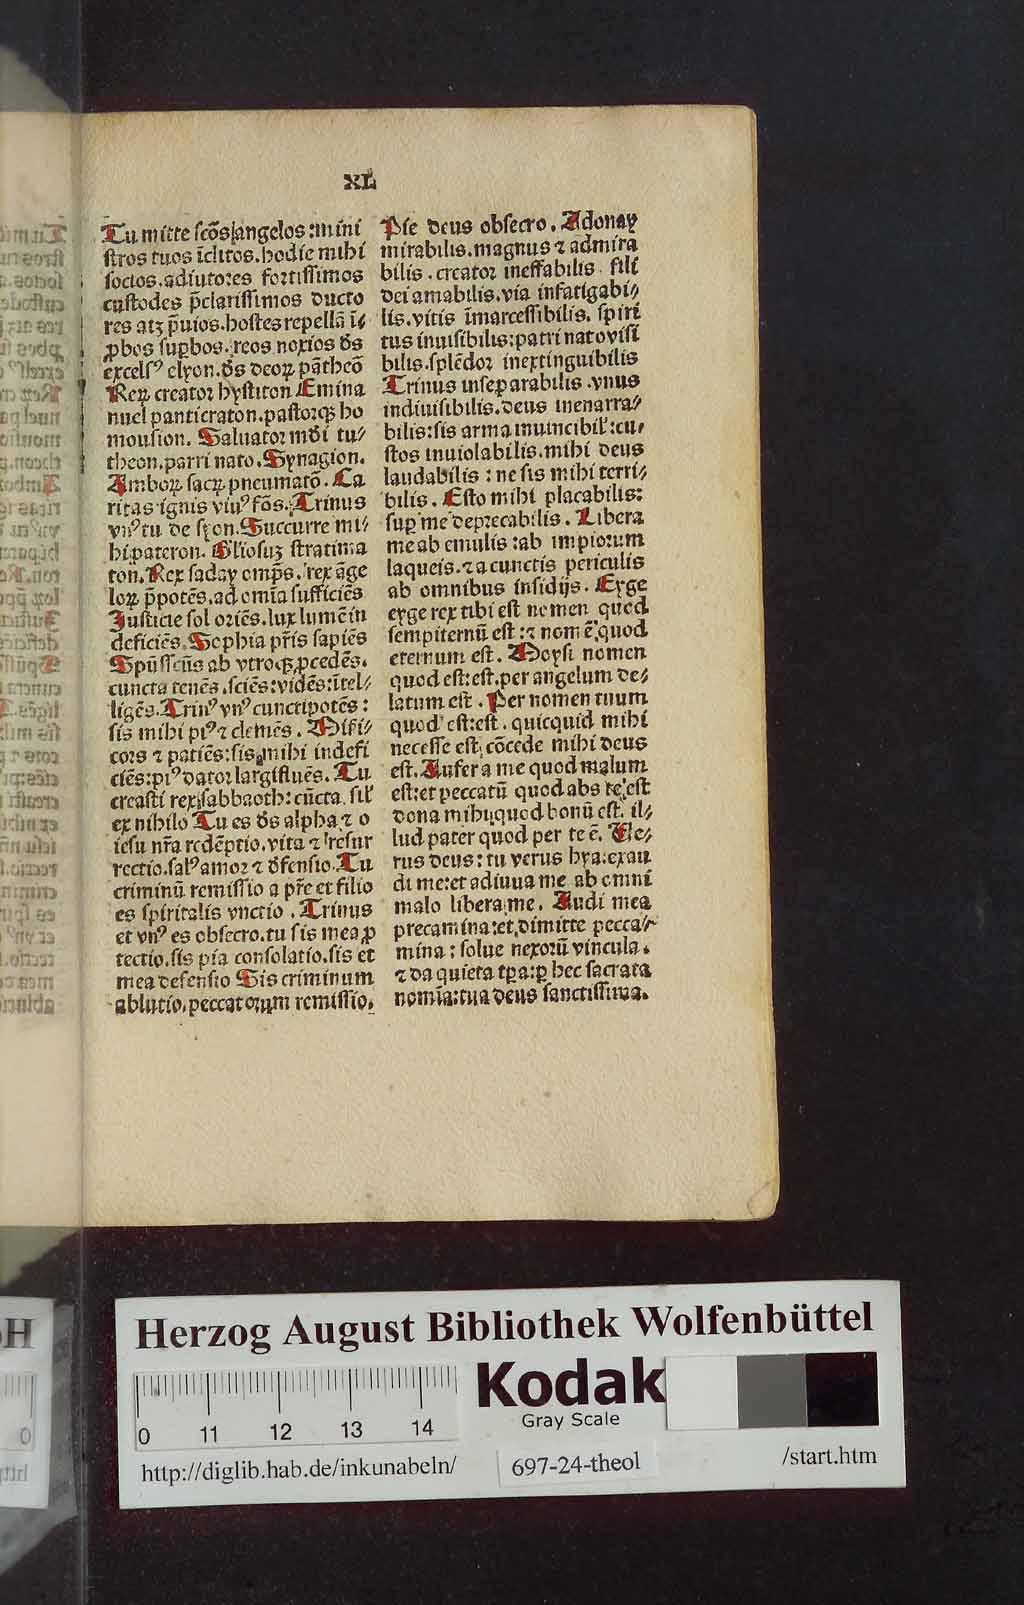 XL
Tu mitte scōs angelos:mini
stros tuos īclitos.hodie mihi
socios.adiutores fortissimos
custodes p̄clarissimos ducto
res atqꝫ p̄uios.hostes repellā ī⸗
ꝓbos suꝑbos.reos noxios dˢ
excelsꝰ elyon.dˢ deoꝝ pātheō
Reꝝ creator hystiton Emma
nuel panticraton.pastorqꝫ ho
mousion. Saluator mūdi tu⸗
theon.patri nato.Synagion.
Amboꝝ sacꝝ pneumatō. Ca
ritas ignis viuꝰ fōs. Trinus
vnꝰ tu de syon. Succurre mi⸗
hi pateron. stratima
ton. Rex saday omp̄s. rex āge
loꝝ p̄potēs.ad omīa sufficiēs
Justicie sol oriēs.lux lumē in
deficiēs. Sophia pr̄is sapiēs
Spūs scūs ab vtroqꝫ ꝓcedēs.
cuncta tenēs.sciēs:vidēs:ītel⸗
ligēs. Trinꝰ vnꝰ cunctipotēs:
sis mihi piꝰ ⁊ clemēs. Miſi⸗
cors ⁊ patiēs:sis mihi indefi
ciēs:piꝰ dator largifluēs. Tu
creasti rex sabbaoth:cūcta sil'
ex nihilo Tu es dˢ alpha ⁊ o
iesu nr̄a redēptio.vita ⁊ resur
rectio.salꝰ amor ⁊ dˢfensio. Tu
criminū remissio a pr̄e et filio
es spiritalis vnctio . Trinus
et vnꝰ es obsecro.tu sis mea ꝓ
tectio.sis pia consolatio.sis et
mea defensio Sis criminum
ablutio.peccatorum remissio.
Pie deus obsecro. Adonay
mirabilis.magnus ⁊ admira
bilis . creator ineffabilis . fili
dei amabilis.via infatigabi⸗
lis.vitis īmarcessibilis. spiri
tus inuisibilis:patri nato visi
bilis.splēdor inextinguibilis
Trinus inseparabilis .vnus
indiuisibilis.deus inenarra⸗
bilis:sis arma inuincibil':cu⸗
stos inuiolabilis.mihi deus
laudabilis : ne sis mihi terri⸗
bilis. Esto mihi placabilis:
suꝑ me deprecabilis . Libera
me ab emulis :ab impiorum
laqueis.⁊ a cunctis periculis
ab omnibus insidijs. Exge
exge rex tibi est nomen quod
sempiternū est :⁊ nomē quod
eternum est. Moysi nomen
quod est:est.per angelum de⸗
latum est . Per nomen tuum
quod est:est . quicquid mihi
necesse est cōcede mihi deus
est. Aufer a me quod malum
est:et peccatū quod abs te est
dona mihi:quod bonū est. il⸗
lud pater quod per te ē. Ue⸗
rus deus : tu verus hya:exau
di me:et adiuua me ab omni
malo libera me. Audi mea
precamina:et dimitte pecca⸗
mina : solue nexorū vincula.
⁊ da quieta tp̄a:ꝑ hec sacrata
nomīa:tua deus sanctissima.
Herzog August Bibliothek Wolfenbüttel
0 11 12 13 14
Kodak
Gray Scale
http://diglib.hab.de/inkunabeln/
697-24-theol
/start.htm